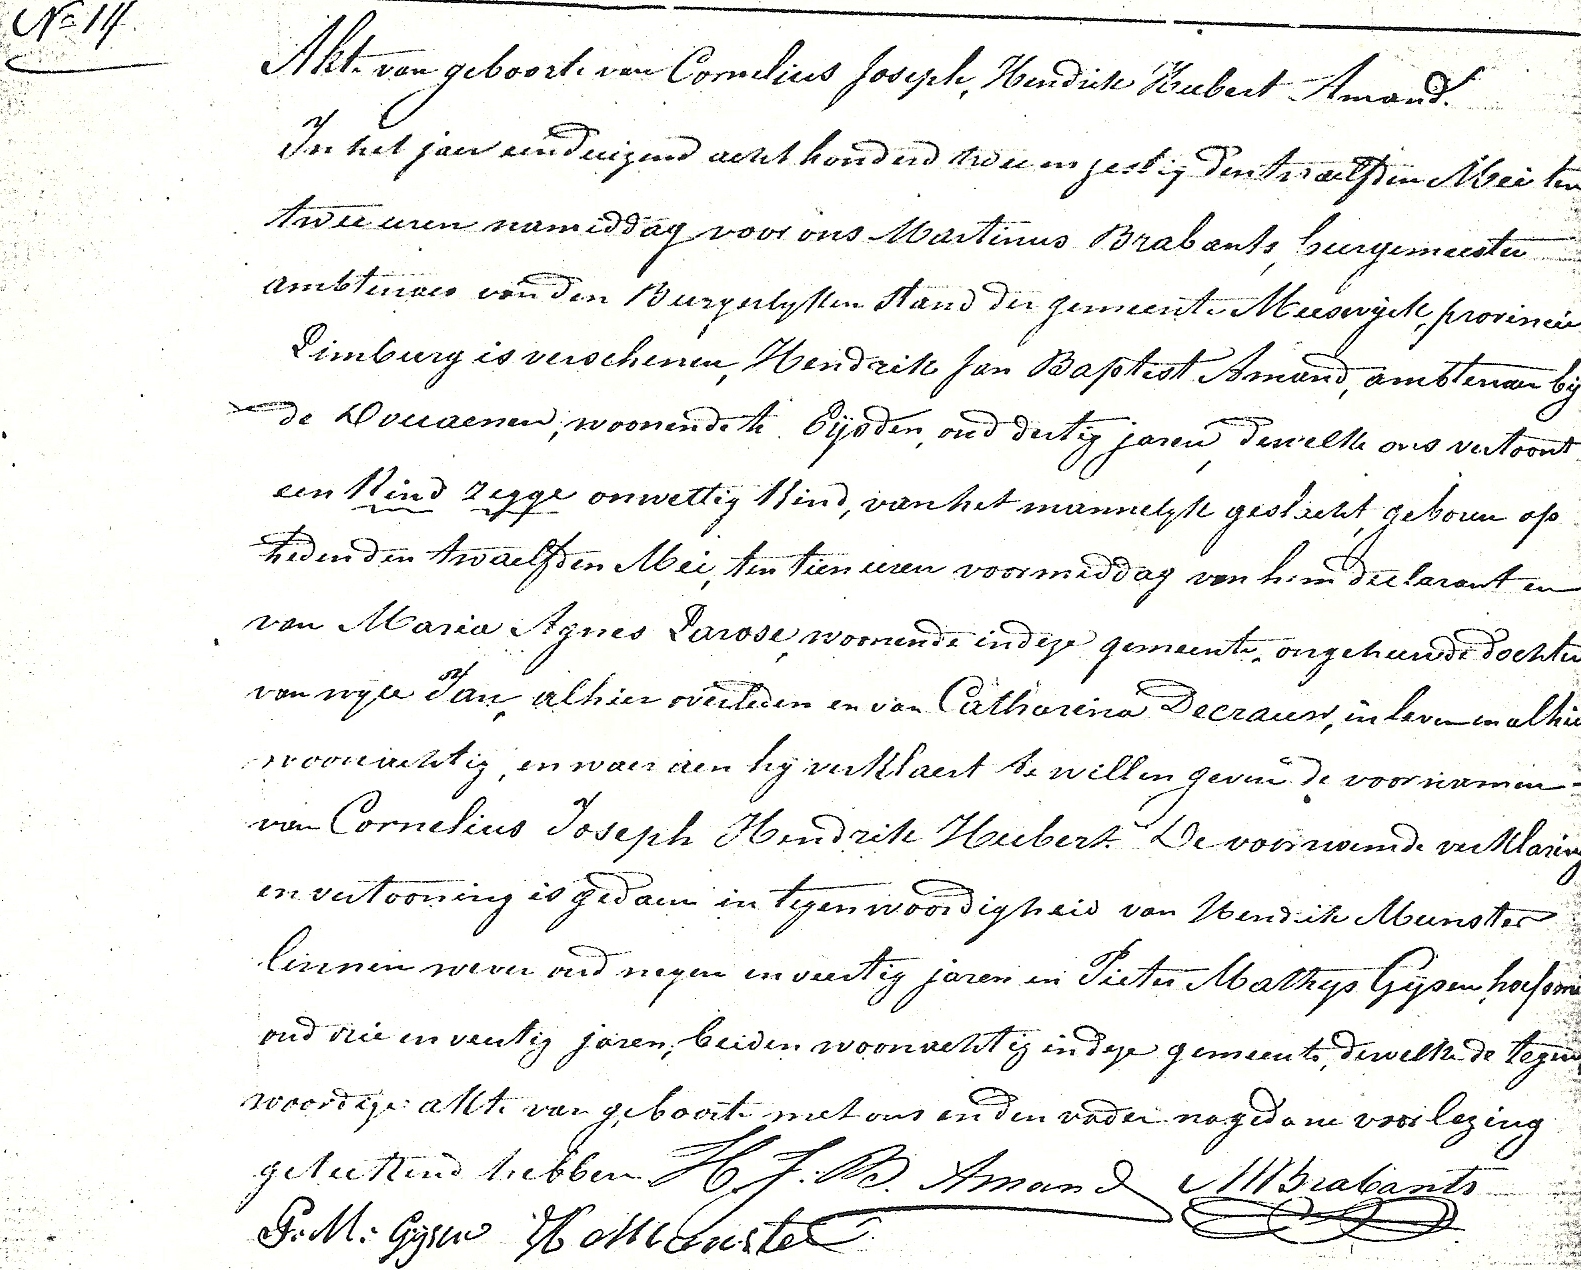 No 14.
Akte van geboorte van Cornelius Joseph, Hendrick Hubert Amand.
In het jaer eenduizend acht honderd twee en zestig den twaelfden Mei ten
twee uren namiddag voor ons Martinus Brabants, burgemeester
ambtenaer van den Burgerlyken Stand der gemeente Meeswyck, provincie
Limburg is verschenen, Hendrik Jan Baptist Amand, ambtenaar bij
de Douaenen, woonende te Eijsden, oud dertig jaren, dewelke ons vertoont
een Kind zegge onwettig Kind, van het mannelyk geslacht, geboren op
heden den twaelfden Mei, ten tien uren voormiddag van hem declarant en
van Maria Agnes Larose, woonende in deze gemeente, ongehuwde dochter
van wyle Jan, alhier overleden en van Catharina Decrauw, in leven en alhier
woonachtig, en waer aen hy verklaert te willen geven de voornamen
van Cornelius Joseph Hendrik Hubert. De voornoemde verklaring
en vertooning is gedaen in tegenwoordigheid van Hendrik Munster
linnen wever oud negen en veertig jaren en Pieter Mathys Gijsen, hoefsmi
oud drie en veertig jaren, beiden woonachtig in deze gemeente, dewelke de tegen
woordige akte van geboorte met ons en den vader na gedane voorlezing
geteekend hebben H. J. B. Amand M Brabants
P. M. Gysen H Munster